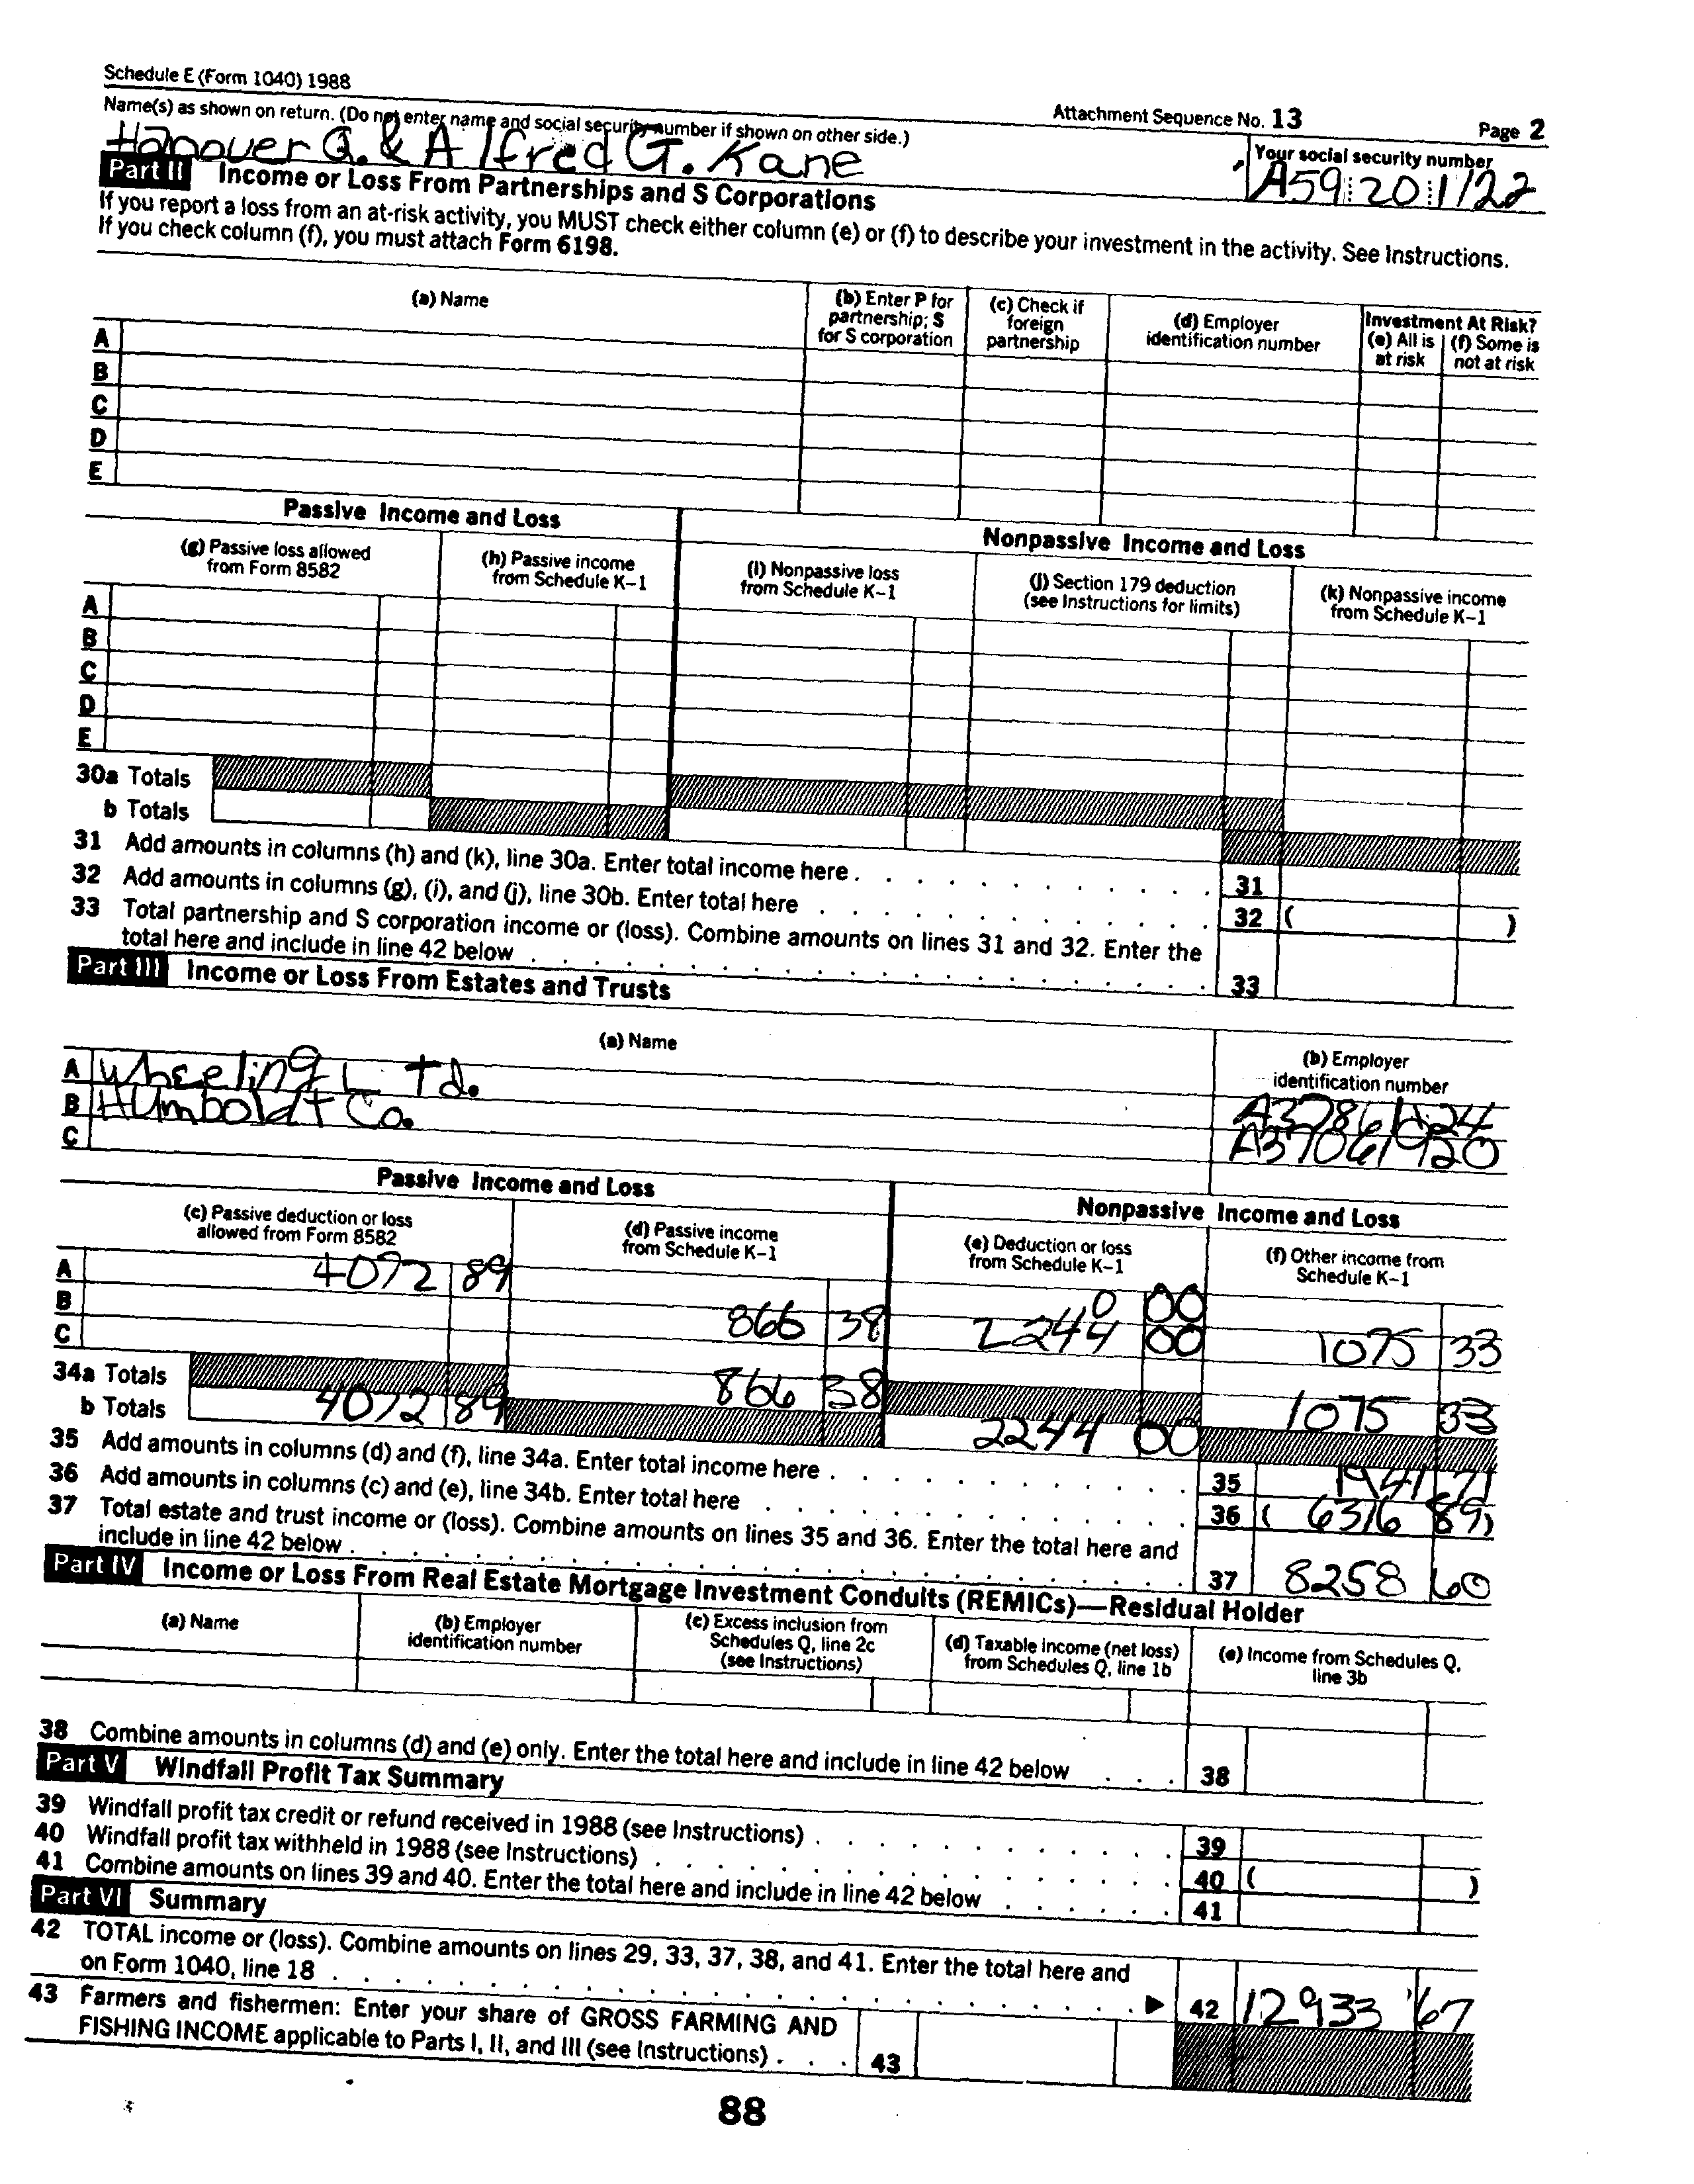 Schedule E (Form 1040) 1988
Attachment Sequence No. 13
Page 2
Name(s) as shown on return. (Do not enter name and social security number if shown on other side.)
Your social security number
Hanover Q. & Alfred G. Kane
A59 20 1122
Part II Income or Loss From Partnerships and S Corporations
If you report a loss from an at-risk activity, you MUST check either column (e) or (f) to describe your investment in the activity. See Instructions.
If you check column (f), you must attach Form 6198.
(a) Name
(b) Enter P for partnership; S for S corporation
(c) Check if foreign partnership
(d) Employer identification number
Investment At Risk?
(e) All is at risk
(f) Some is not at risk
A
B
C
D
E
Passive Income and Loss
Nonpassive Income and Loss
(g) Passive loss allowed from Form 8582
(h) Passive income from Schedule K-1
(i) Nonpassive loss from Schedule K-1
(j) Section 179 deduction (see Instructions for limits)
(k) Nonpassive income from Schedule K-1
A
B
C
D
E
30a Totals
b Totals
31 Add amounts in columns (h) and (k), line 30a. Enter total income here . . . . . . . . . . . . 31
32 Add amounts in columns (g), (i), and (j), line 30b. Enter total here . . . . . . . . . . . . 32 ( )
33 Total partnership and S corporation income or (loss). Combine amounts on lines 31 and 32. Enter the
total here and include in line 42 below . . . . . . . . . . . . 33
Part III Income or Loss From Estates and Trusts
(a) Name
(b) Employer identification number
A Wheeling Ltd. A37861424
B Humboldt Co. A37061920
C
Passive Income and Loss
Nonpassive Income and Loss
(c) Passive deduction or loss allowed from Form 8582
(d) Passive income from Schedule K-1
(e) Deduction or loss from Schedule K-1
(f) Other income from Schedule K-1
A 4072 89 0 00
B 866 38 2244 00 1075 33
C
34a Totals 866 38 1075 33
b Totals 4072 89 2244 00
35 Add amounts in columns (d) and (f), line 34a. Enter total income here . . . . . . . . . . . . 35 1941 71
36 Add amounts in columns (c) and (e), line 34b. Enter total here . . . . . . . . . . . . 36 ( 6316 89)
37 Total estate and trust income or (loss). Combine amounts on lines 35 and 36. Enter the total here and
include in line 42 below . . . . . . . . . . . . 37 8258 60
Part IV Income or Loss From Real Estate Mortgage Investment Conduits (REMICs)—Residual Holder
(a) Name
(b) Employer identification number
(c) Excess inclusion from Schedules Q, line 2c (see Instructions)
(d) Taxable income (net loss) from Schedules Q, line 1b
(e) Income from Schedules Q, line 3b
38 Combine amounts in columns (d) and (e) only. Enter the total here and include in line 42 below . . . 38
Part V Windfall Profit Tax Summary
39 Windfall profit tax credit or refund received in 1988 (see Instructions) . . . . . . . . . . . . 39
40 Windfall profit tax withheld in 1988 (see Instructions) . . . . . . . . . . . . 40 ( )
41 Combine amounts on lines 39 and 40. Enter the total here and include in line 42 below . . . . . . 41
Part VI Summary
42 TOTAL income or (loss). Combine amounts on lines 29, 33, 37, 38, and 41. Enter the total here and
on Form 1040, line 18 . . . . . . . . . . . . ► 42 12933 67
43 Farmers and fishermen: Enter your share of GROSS FARMING AND
FISHING INCOME applicable to Parts I, II, and III (see Instructions) . . . 43
88